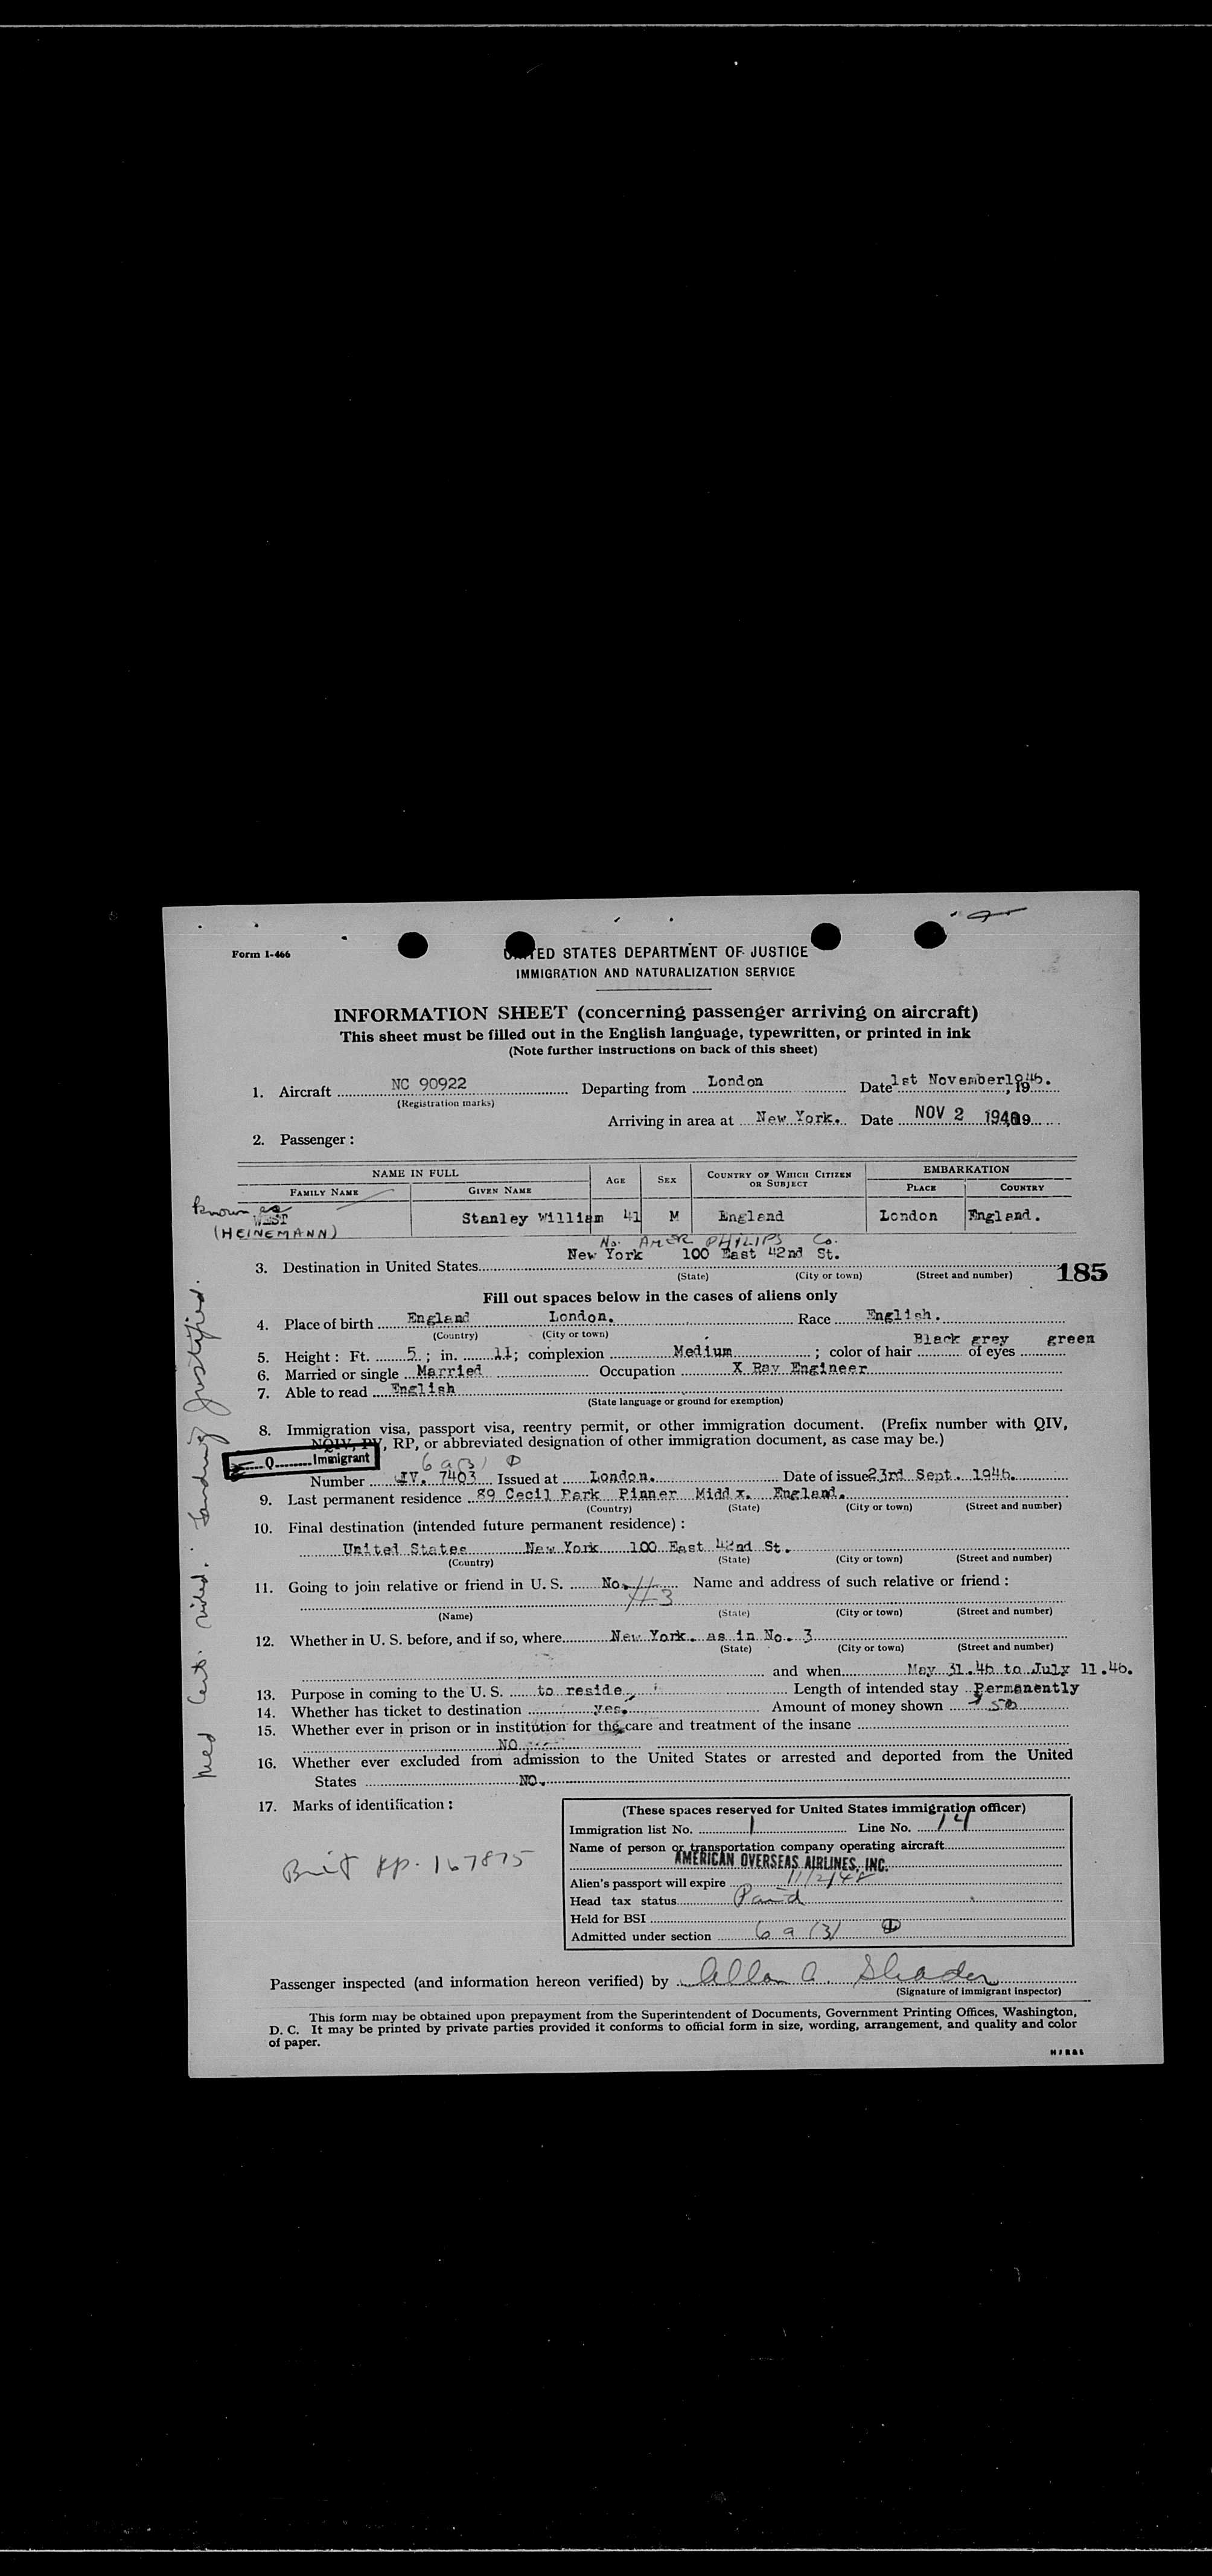 Form I-466
UNITED STATES DEPARTMENT OF JUSTICE
IMMIGRATION AND NATURALIZATION SERVICE
INFORMATION SHEET (concerning passenger arriving on aircraft)
This sheet must be filled out in the English language, typewritten, or printed in ink
(Note further instructions on back of this sheet)
1. Aircraft NC 90922 Departing from London Date 1st November 1946.
(Registration marks)
Arriving in area at New York. Date NOV 2 1946
2. Passenger:
NAME IN FULL AGE SEX COUNTRY OF WHICH CITIZEN OR SUBJECT EMBARKATION
FAMILY NAME GIVEN NAME PLACE COUNTRY
known as
WEST Stanley William 41 M England London England.
(HEINEMANN)
No. AMER PHILIPS Co.
New York 100 East 42nd St.
3. Destination in United States
(State) (City or town) (Street and number)
185
Fill out spaces below in the cases of aliens only
4. Place of birth England London. Race English.
(Country) (City or town)
5. Height: Ft. 5; in. 11; complexion Medium; color of hair Black grey of eyes green
6. Married or single Married Occupation X Ray Engineer
7. Able to read English
(State language or ground for exemption)
8. Immigration visa, passport visa, reentry permit, or other immigration document. (Prefix number with QIV,
NQIV, PV, RP, or abbreviated designation of other immigration document, as case may be.)
Q Immigrant
6a(3)
Number IV. 7403 Issued at London. Date of issue 23rd Sept. 1946.
9. Last permanent residence 89 Cecil Park Pinner Midd x. England.
(Country) (State) (City or town) (Street and number)
10. Final destination (intended future permanent residence):
United States New York 100 East 42nd St.
(Country) (State) (City or town) (Street and number)
11. Going to join relative or friend in U. S. No. Name and address of such relative or friend:
#3
(Name) (State) (City or town) (Street and number)
12. Whether in U. S. before, and if so, where New York. as in No. 3
(State) (City or town) (Street and number)
and when May 31.46 to July 11.46.
13. Purpose in coming to the U. S. to reside Length of intended stay Permanently
14. Whether has ticket to destination yes. Amount of money shown $50
15. Whether ever in prison or in institution for the care and treatment of the insane
NO
16. Whether ever excluded from admission to the United States or arrested and deported from the United
States NO.
17. Marks of identification:
Brit pp. 167875
(These spaces reserved for United States immigration officer)
Immigration list No. 1 Line No. 14
Name of person or transportation company operating aircraft
AMERICAN OVERSEAS AIRLINES, INC.
Alien's passport will expire 11/2/48
Head tax status Paid
Held for BSI
Admitted under section 6a(3)
Passenger inspected (and information hereon verified) by Allan A. Shader
(Signature of immigrant inspector)
This form may be obtained upon prepayment from the Superintendent of Documents, Government Printing Offices, Washington,
D. C. It may be printed by private parties provided it conforms to official form in size, wording, arrangement, and quality and color
of paper.
Med Cert. Landing justified.